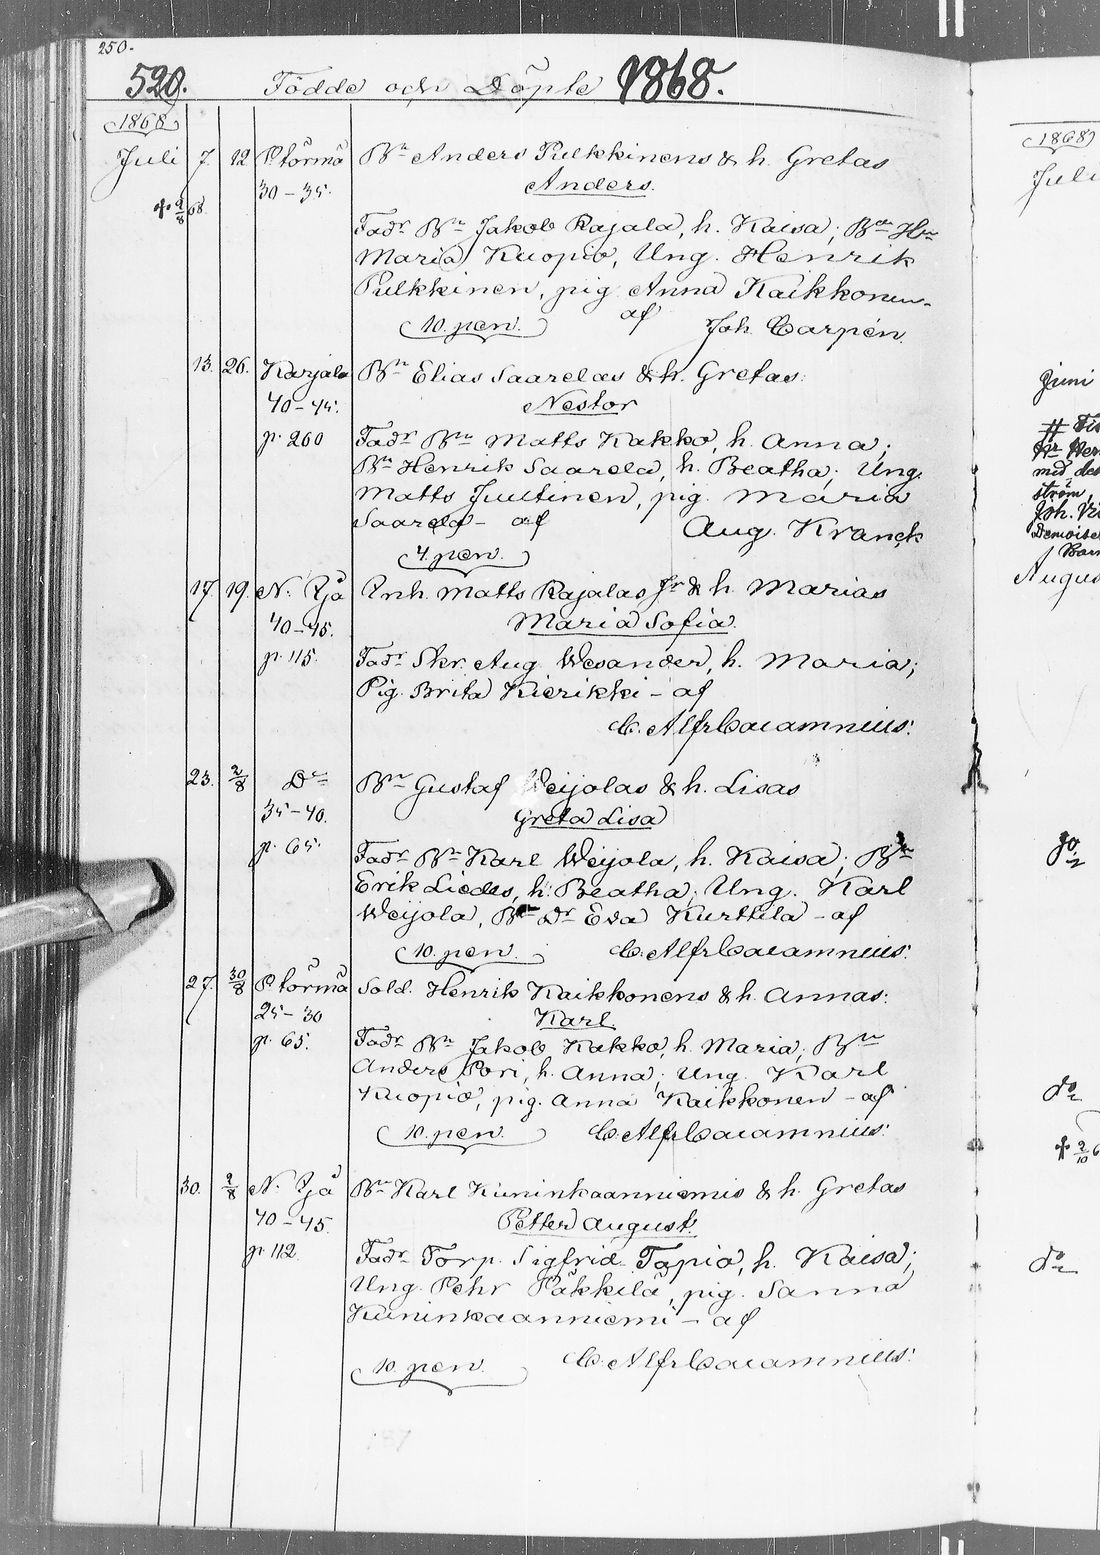 250.
520. Födde och Döpte 1868.
1868
Juli 7. 12 P törmä Bn Anders Pulkkinens & h. Gretas
30-35. Anders.
+ 9/8 68.
Fadr Bn Jakob Rajala, h. Kaisa; Bn Hu
Maria Kuopio, Ung. Henrik
Pulkkinen, pig. Anna Kaikkonen
10. pen. af Joh. Carpén
13. 26. Karjala Bn Elias Saarelas & h. Gretas:
40-45. Nestor
p. 260 Fadr Bn Matts Kakko, h. Anna;
Bn Henrik Saarela, h. Beatha; Ung.
Matts Juutinen, pig. Maria
Saarela - af Aug. Kranck
4. pen.
17. 19. N. Yjå Inh. Matts Rajalas Jr & h Marias
40-45. Maria Sofia
p. 115. Fadr Skr. Aug. Wesander, h. Maria;
Pig. Brita Kierikki - af
C. Alfr Calamnius.
23. 2/8 Do Bn Gustaf Weijolas & h. Lisas
35-40. Greta Lisa
p. 65. Fadr Bn Karl Weijola, h. Kaisa; Bn
Erik Liedes, h. Beatha; Ung. Karl
Weijola, Bn Dr Eva Kurttila - af
10. pen. C. Alfr Calamnius.
27. 30/8 P törmä Sold. Henrik Kaikkonens & h. Annas:
25-30 Karl
p. 65. Fadr Bn Jakob Kakko, h. Maria; Bn
Anders Pori, h. Anna; Ung. Karl
Kuopio, pig. Anna Kaikkonen - af
10. pen. C. Alfr Calamnius.
30. 9/8 N. Yjå Bn Karl Kuninkaanniemis & h. Gretas
40-45. Petter August
p. 112 Fadr Torp. Sigfrid Tapio, h. Kaisa;
Ung. Pehr Päkkilä, pig. Sanna
Kuninkaanniemi - af
10. pen. C. Alfr Calamnius.
1868
Juli
Juni
med des
ström,
Joh.
Demoisel
Augus
do
do
+ 9/10 6
do